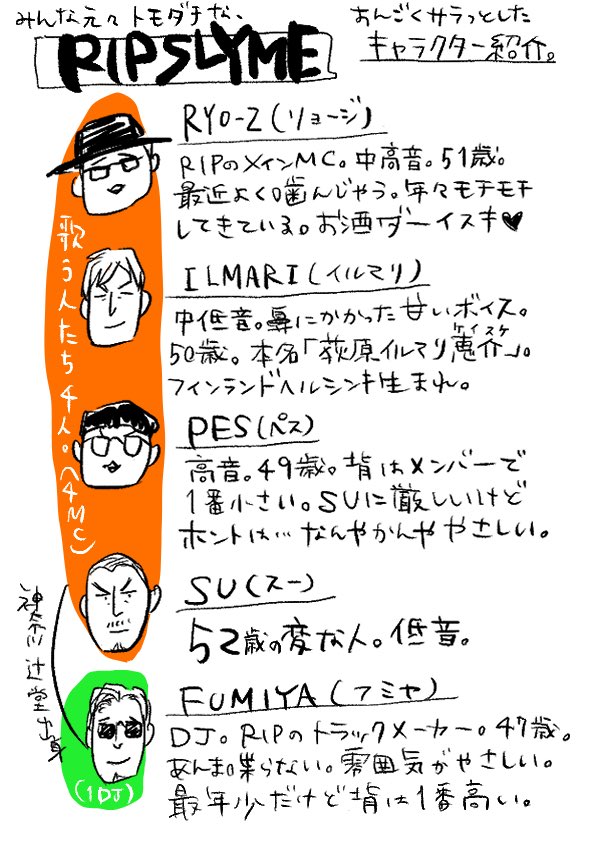 みんな元々トモダチな、
おんごくサラっとした
キャラクター紹介。
RIPSLYME
RYO-Z(リョージ)
RIPのメインMC。中高音。51歳。
最近よく噛んじゃう。年々モチモチ
してきている。お酒ダーイスキ♥
ILMARI(イルマリ)
中低音。鼻にかかった甘いボイス。
50歳。本名「荻原イルマリ恵介」。
ケイスケ
フィンランドヘルシンキ生まれ。
PES(ペス)
高音。49歳。背はメンバーで
1番小さい。SUに厳しいけど
ホントは…なんやかんややさしい。
SU(スー)
52歳の変な人。低音。
FUMIYA(フミヤ)
DJ。RIPのトラックメーカー。47歳。
あんま喋らない。雰囲気がやさしい。
最年少だけど背は1番高い。
歌う人たち4人。(4MC)
神奈川辻堂出身
(1DJ)